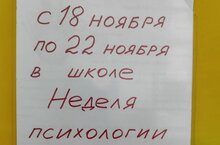 С 18 НОЯБРЯ
ПО 22 НОЯБРЯ
В ШКОЛЕ
Неделя
ПСИХОЛОГИИ